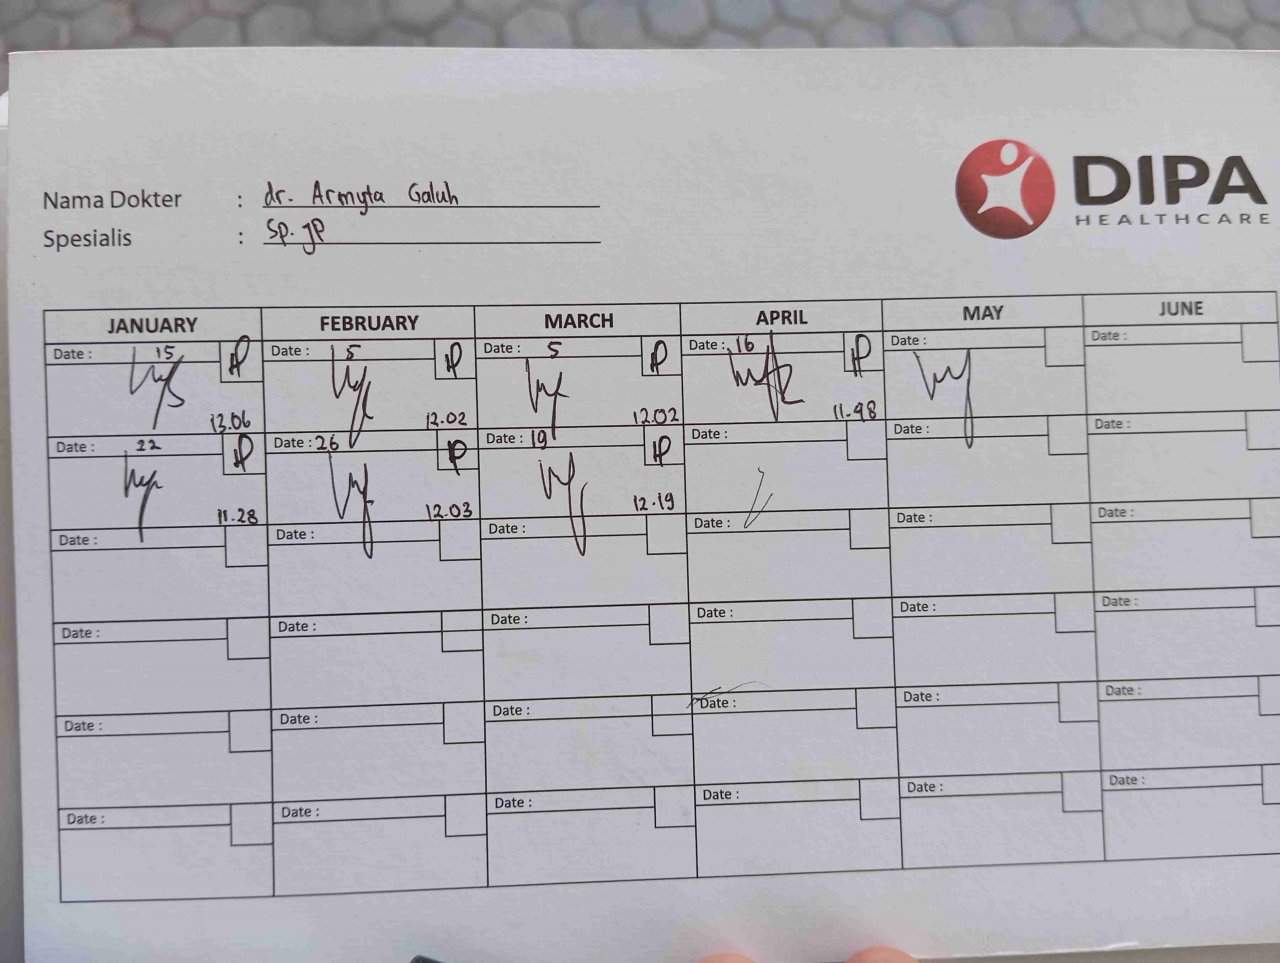 DIPA
HEALTHCARE
Nama Dokter : dr. Armyta Galuh
Spesialis : Sp. JP
JANUARY FEBRUARY MARCH APRIL MAY JUNE
Date : 15 Date : 5 Date : 5 Date : 16 Date : Date :
13.06 12.02 12.02 11.98
Date : 22 Date : 26 Date : 19 Date : Date : Date :
11.28 12.03 12.19
Date : Date : Date : Date : Date : Date :
Date : Date : Date : Date : Date : Date :
Date : Date : Date : Date : Date : Date :
Date : Date : Date : Date : Date : Date :